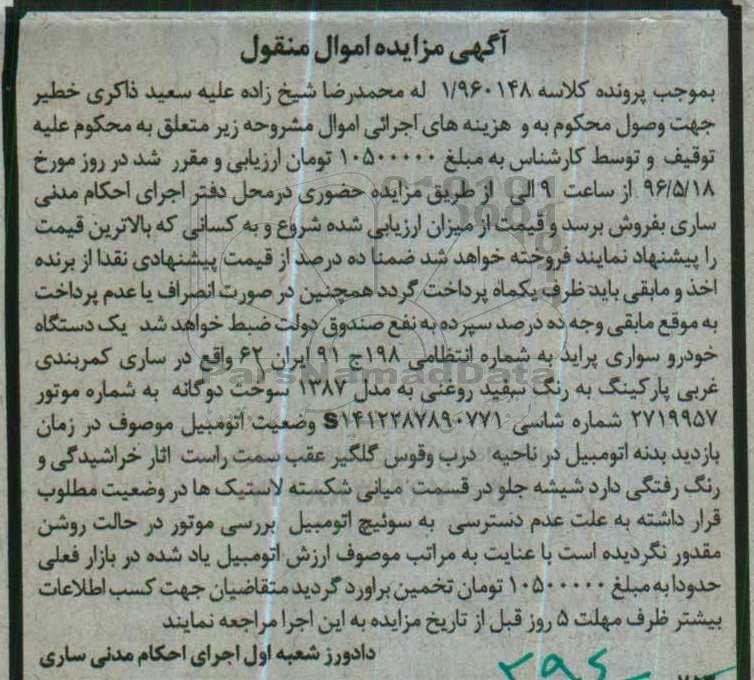 آگهی مزایده اموال منقول
بموجب پرونده کلاسه ۱/۹۶۰۱۴۸ له محمدرضا شیخ زاده علیه سعید ذاکری خطیر
جهت وصول محکوم به و هزینه های اجرائی اموال مشروحه زیر متعلق به محکوم علیه
توقیف و توسط کارشناس به مبلغ ۱۰۵۰۰۰۰۰ تومان ارزیابی و مقرر شد در روز مورخ
۹۶/۵/۱۸ از ساعت ۹ الی از طریق مزایده حضوری درمحل دفتر اجرای احکام مدنی
ساری بفروش برسد و قیمت از میزان ارزیابی شده شروع و به کسانی که بالاترین قیمت
را پیشنهاد نمایند فروخته خواهد شد ضمنا ده درصد از قیمت پیشنهادی نقدا از برنده
اخذ و مابقی باید ظرف یکماه پرداخت گردد همچنین در صورت انصراف یا عدم پرداخت
به موقع مابقی وجه ده درصد سپرده به نفع صندوق دولت ضبط خواهد شد یک دستگاه
خودرو سواری پراید به شماره انتظامی ۱۹۸ج ۹۱ ایران ۶۲ واقع در ساری کمربندی
غربی پارکینگ به رنگ سفید روغنی به مدل ۱۳۸۷ سوخت دوگانه به شماره موتور
۲۷۱۹۹۵۷ شماره شاسی S۱۴۱۲۲۸۷۸۹۰۷۷۱ وضعیت اتومبیل موصوف در زمان
بازدید بدنه اتومبیل در ناحیه درب وقوس گلگیر عقب سمت راست اثار خراشیدگی و
رنگ رفتگی دارد شیشه جلو در قسمت میانی شکسته لاستیک ها در وضعیت مطلوب
قرار داشته به علت عدم دسترسی به سوئیچ اتومبیل بررسی موتور در حالت روشن
مقدور نگردیده است با عنایت به مراتب موصوف ارزش اتومبیل یاد شده در بازار فعلی
حدودا به مبلغ ۱۰۵۰۰۰۰۰ تومان تخمین براورد گردید متقاضیان جهت کسب اطلاعات
بیشتر ظرف مهلت ۵ روز قبل از تاریخ مزایده به این اجرا مراجعه نمایند
دادورز شعبه اول اجرای احکام مدنی ساری
ParsNamadData